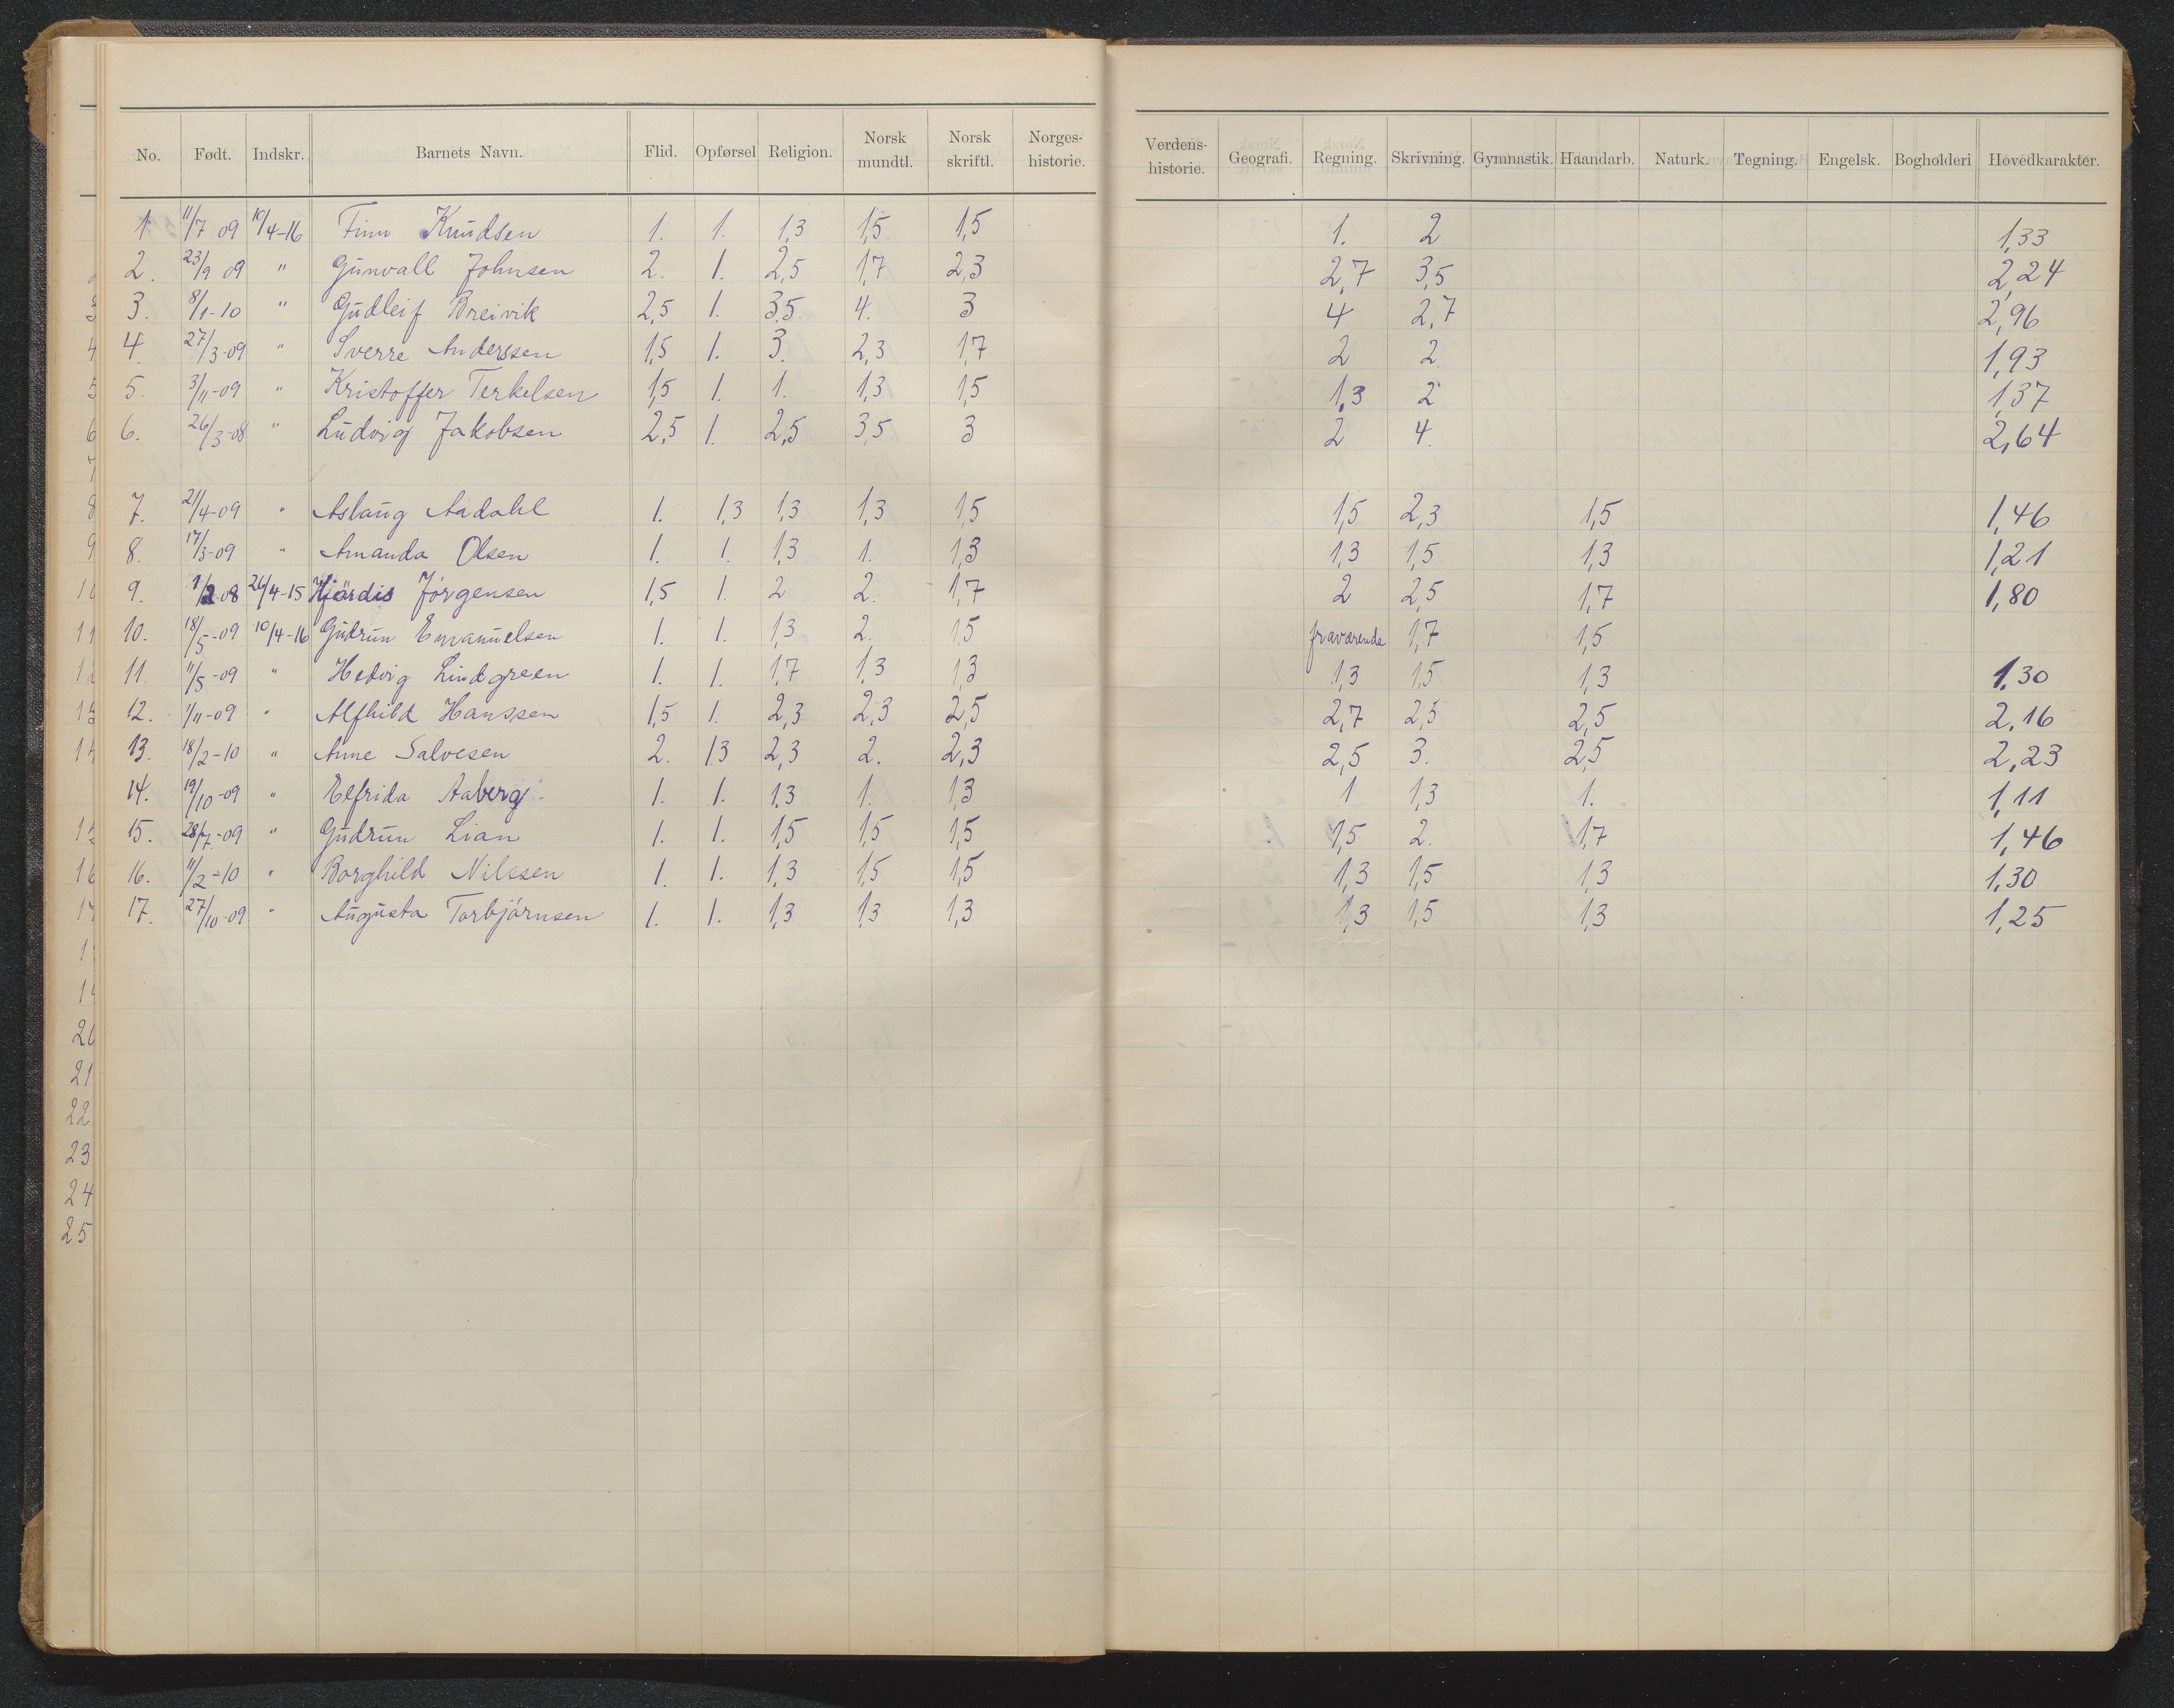 No. Født. Indskr. Barnets Navn. Flid. Opførsel Religion. Norsk mundtl. Norsk skriftl. Norges-historie. Verdens-historie. Geografi. Regning. Skrivning. Gymnastik. Haandarb. Naturk. Tegning. Engelsk. Bogholderi Hovedkarakter.
1 11/7 09 10/4-16 Finn Knudsen 1. 1. 1,3 1,5 1,5 1. 2 1,33
2. 23/9 09 " Gunvall Johnsen 2. 1. 2,5 1,7 2,3 2,7 3,5 2,24
3. 8/1-10 " Gudleif Breivik 2,5 1. 3,5 4. 3 4 2,7 2,96
4. 27/3-09 " Sverre Anderssen 1,5 1. 3. 2,3 1,7 2 2 1,93
5. 3/11-09 " Kristoffer Terkelsen 1,5 1. 1. 1,3 1,5 1,3 2 1,37
6. 26/3-08 " Ludvig Jakobsen 2,5 1. 2,5 3,5 3 2 4. 2,64
7. 21/4-09 " Aslaug Aadahl 1. 1,3 1,3 1,3 1,5 1,5 2,3 1,5 1,46
8. 17/3-09 " Amanda Olsen 1. 1. 1,3 1. 1,3 1,3 1,5 1,3 1,21
9. 1/2-08 26/4-15 Hjördis Jørgensen 1,5 1. 2 2. 1,7 2 2,5 1,7 1,80
10. 18/5-09 10/4-16 Gudrun Emanuelsen 1. 1. 1,3 2. 1,5 fraværende 1,7 1,5
11. 11/5-09 " Hedvig Lindgreen 1. 1. 1,7 1,3 1,3 1,3 1,5 1,3 1,30
12. 1/11-09 " Alfhild Hanssen 1,5 1. 2,3 2,3 2,5 2,7 2,5 2,5 2,16
13. 18/2-10 " Anne Salvesen 2. 1,3 2,3 2. 2,3 2,5 3. 2,5 2,23
14. 19/10-09 " Elfrida Aaberg 1. 1. 1,3 1. 1,3 1 1,3 1. 1,11
15. 28/7-09 " Gudrun Lian 1. 1. 1,5 1,5 1,5 1,5 2. 1,7 1,46
16. 11/2-10 " Borghild Nilssen 1. 1. 1,3 1,5 1,5 1,3 1,5 1,3 1,30
17. 27/10-09 " Augusta Torbjørnsen 1. 1. 1,3 1,3 1,3 1,3 1,5 1,3 1,25
21
22
23
24
25